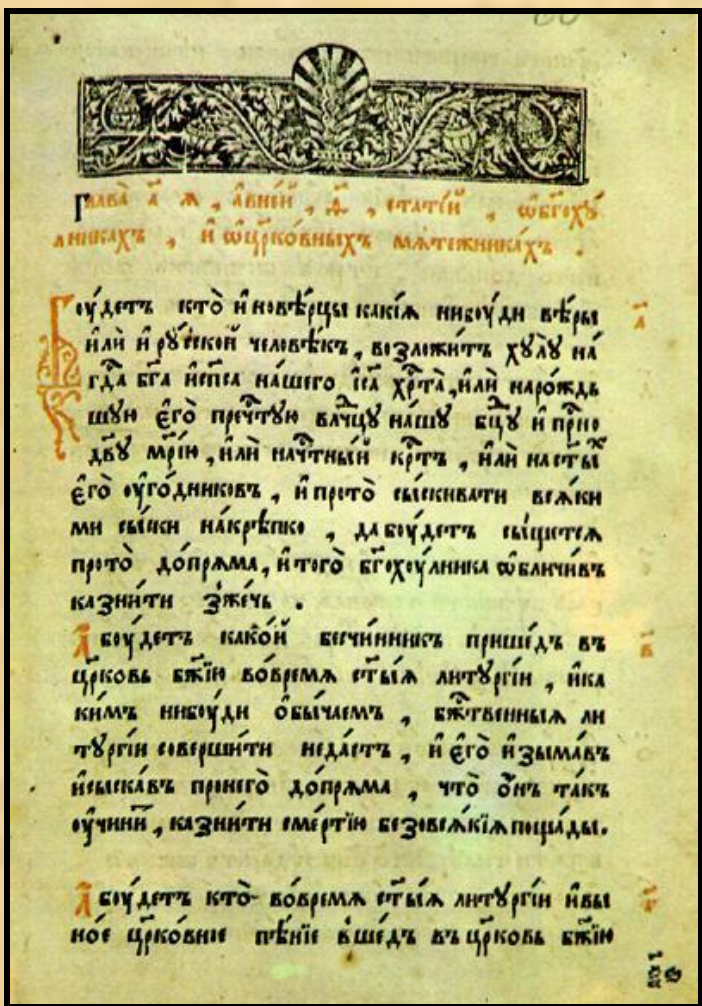 60
Глава̀ а҃ я , а҆вне́й , д҃ , стате́й , ѡ҆бг҃охꙋ́
лникахъ , и҆ ѡ҆цр҃ко́вныхъ мѧте́жника́хъ .
Боу́детъ кто̀ и҆новѣ́рцы какі́ѧ нибоу́ди вѣ́ры
и҆лѝ и҆ рꙋ́сской человѣ́къ , возложи́тъ хꙋлꙋ̀ на̀
гд҃а бг҃а и҆сп҃са на́шего і҆с҃а хр҃та̀ , и҆лѝ наро́ждь
шꙋю є҆го̀ пречⷭ҇тꙋю влⷣчцꙋ на́шꙋ бц҃ꙋ и҆ прⷭ҇но
дв҃ꙋ мр҃і́ю , и҆лѝ начⷭ҇тны́й крⷭ҇тъ , и҆лѝ наст҃ы́ⷯ
є҆го̀ оу҆го́дниковъ , и҆ прото̀ сы́скивати всѧ́ки
ми сы́ски на́крѣпко , да боу́детъ сы́щетсѧ
прото̀ до́прѧма , и҆ того̀ бг҃охоу́лника ѡ҆бличи́въ
казни́ти зже́чь .
А҆ боу́детъ како́й бесчи́нникъ прише́дъ въ
цр҃ковь бж҃ію во́времѧ ст҃ы́ѧ литꙋргі́и , и҆ ка
ки́мъ нибоу́ди ѻ҆бы́чаемъ , бжⷭ҇твенныѧ ли
тꙋргі́и соверши́ти неда́стъ , и҆ є҆го̀ и҆зыма́въ
и҆ сыска́въ пронего̀ до́прѧма , что̀ ѻ҆́нъ та́къ
оу҆чини́ⷮ , казни́ти сме́ртїю безовсѧ́кїѧ поща́ды .
А҆ боу́детъ кто̀ во́времѧ ст҃ы́ѧ литꙋргі́и и҆ вы
но́е цр҃ко́вное пѣ́нїе вше́дъ въ цр҃ковь бж҃їю
а҃
в҃
г҃